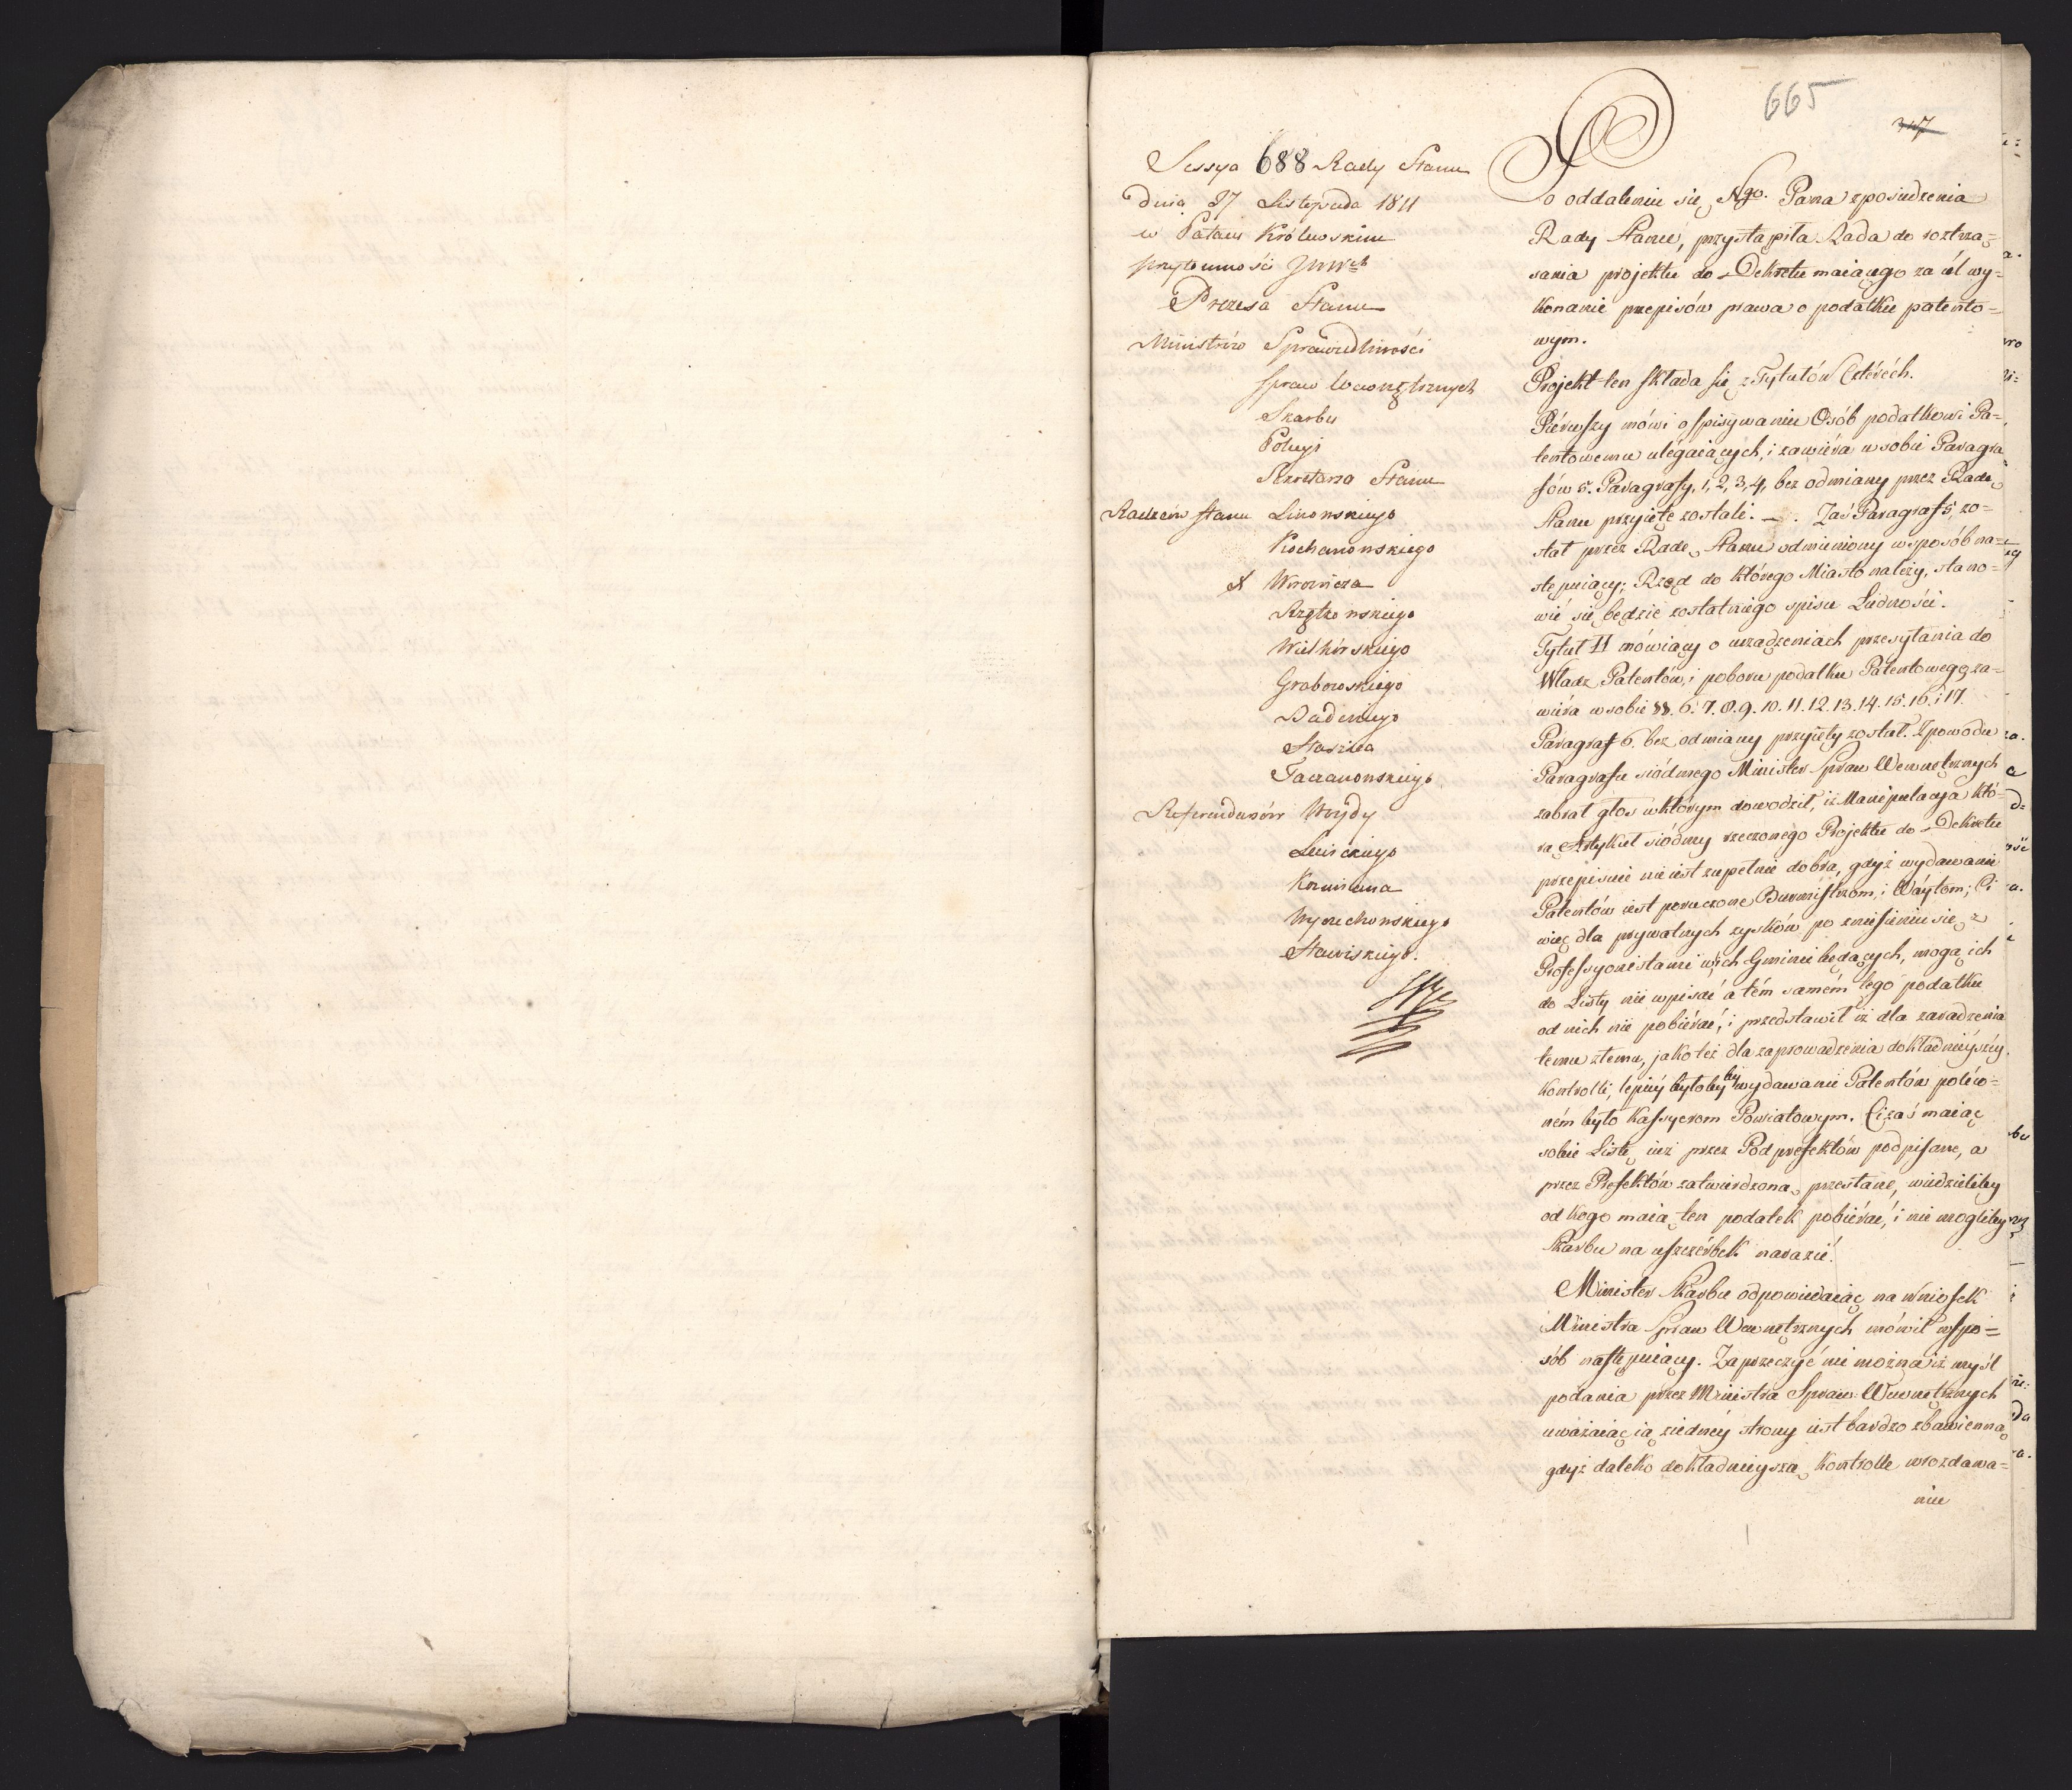 665
347
Sessya 688 Rady Stanu
Dnia 27 Listopada 1811
w Pałacu Królewskim
przytomności JWWch
Prezesa Stanu
Ministrów Sprawiedliwości
Spraw Wewnętrznych
Skarbu
Policyi
Sekretarza Stanu
Radzców Stanu Linowskiego
Kochanowskiego
X Woronicza
Rzętkowskiego
Wielhórskiego
Grabowskiego
Badeniego
Staszica
Taczanowskiego
Referendarzów Woydy
Lewickiego
Koźmiana
Wyczechowskiego
Stawiskiego.
Po oddaleniu się Nygo. Pana z posiedzenia
Rady Stanu, przystąpiła Rada do roztrzą=
sania projektu do Dekretu maiącego za cel wy=
konanie przepisów prawa o podatku patento=
wym.
Projekt ten składa się z Tytułów Cztérech.
Piérwszy mówi o spisywaniu Osób podatkowi Pa=
tentowemu ulégaiących, i zawiéra w sobie Paragra=
fów 5. Paragrafy, 1, 2, 3, 4, bez odmiany przez Radę
Stanu przyięte zostali. — . Zaś Paragraf 5, zo=
stał przez Radę Stanu odmieniony w sposób na=
stępuiący; Rząd do którego Miasto należy, stano=
wić się będzie z ostatniego spisu Ludności.
Tytuł II mówiący o urządzeniach przesyłania do
Władz Patentów, i poboru podatku Patentowego, za=
wiéra w sobie §§. 6. 7. 8. 9. 10. 11. 12. 13. 14. 15. 16. i 17.
Paragraf 6. bez odmiany przyięty został. Z powodu
Paragrafu siódmego Minister Spraw Wewnętrznych
zabrał głos w którym dowodził, iż Manipulacya któ=
rą Artykuł siódmy rzeczonego Projektu do Dekretu
przepisuie nie iest zupełnie dobra, gdyż wydawanie
Patentów iest poruczone Burmistrzom, i Wóytom; Ci
więc dla prywatnych zysków po zniesieniu się z
Professyonistami w ich Gminie będących, mogą ich
do Listy nie wpisać a tém samém tégo podatku
od nich nie pobiérać, i przedstawił iż dla zaradzenia
temu złemu, jako też dla zaprowadzenia dokładnieyszéy
kontrolli, lepiéy byłoby by wydawanie Patentów poléco=
ném było Kassyerom Powiatowym. Ci zaś maiąc
sobie Listę iuż przez Podprefektów podpisane, a
przez Prefektów zatwierdzoną przesłane, wiedzieliby
od kogo maią ten podatek pobiérać, i nie mogliby
Skarbu na uszczérbek narazić.
Minister Skarbu odpowiedaiąc na wniosek
Ministra Spraw Wewnętrznych mówił w spo=
sób następuiący. Zaprzeczyć nie można iż myśl
podania przez Ministra Spraw Wewnętrznych
uważaiąc ią z iednéy strony iest bardzo zbawienną
gdyż daleko dokładnieyszą kontrolle w rozdawa=
niu